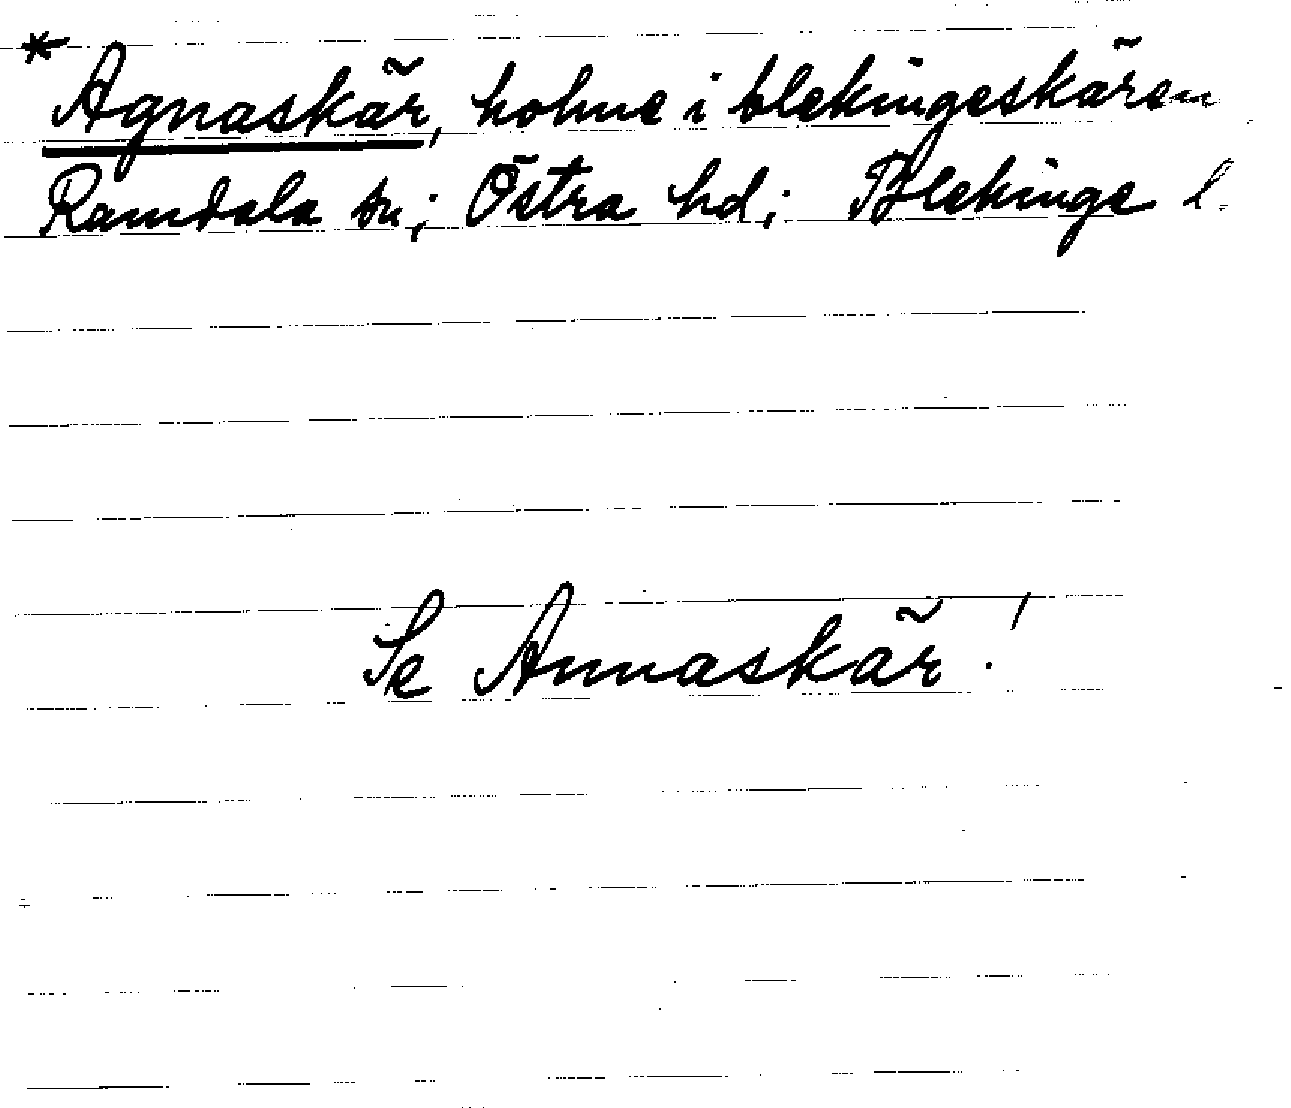 * Agnaskär, holme i blekingeskären
Ramdala sn; Östra hd; Blekinge l.
Se Annaskär!